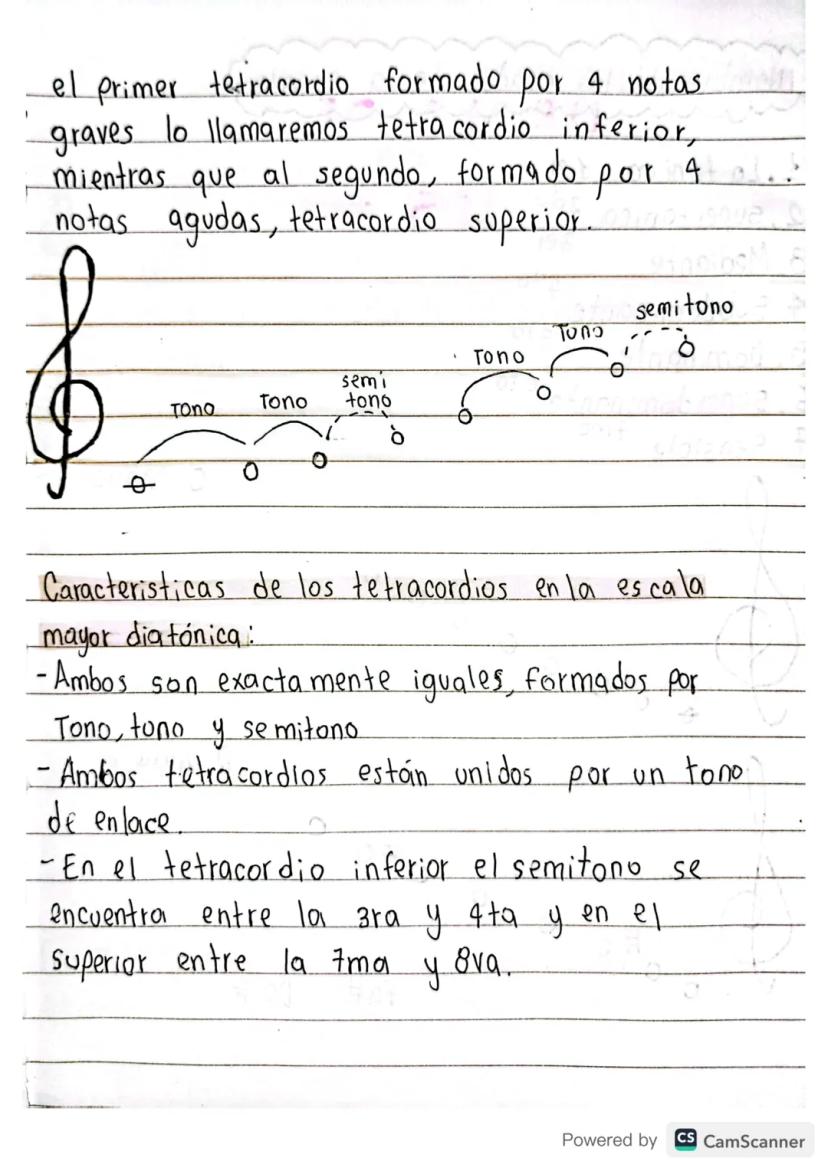 el primer tetracordio formado por 4 notas
graves lo llamaremos tetracordio inferior,
mientras que al segundo, formado por 4
notas agudas, tetracordio superior.
semitono
Tono
Tono
semi
tono
Tono
Tono
Caracteristicas de los tetracordios en la escala
mayor diatónica:
- Ambos son exactamente iguales, formados por
Tono, tono y semitono
- Ambos tetracordios están unidos por un tono
de enlace.
- En el tetracordio inferior el semitono se
encuentra entre la 3ra y 4ta y en el
superior entre la 7ma y 8va.
Powered by CS CamScanner